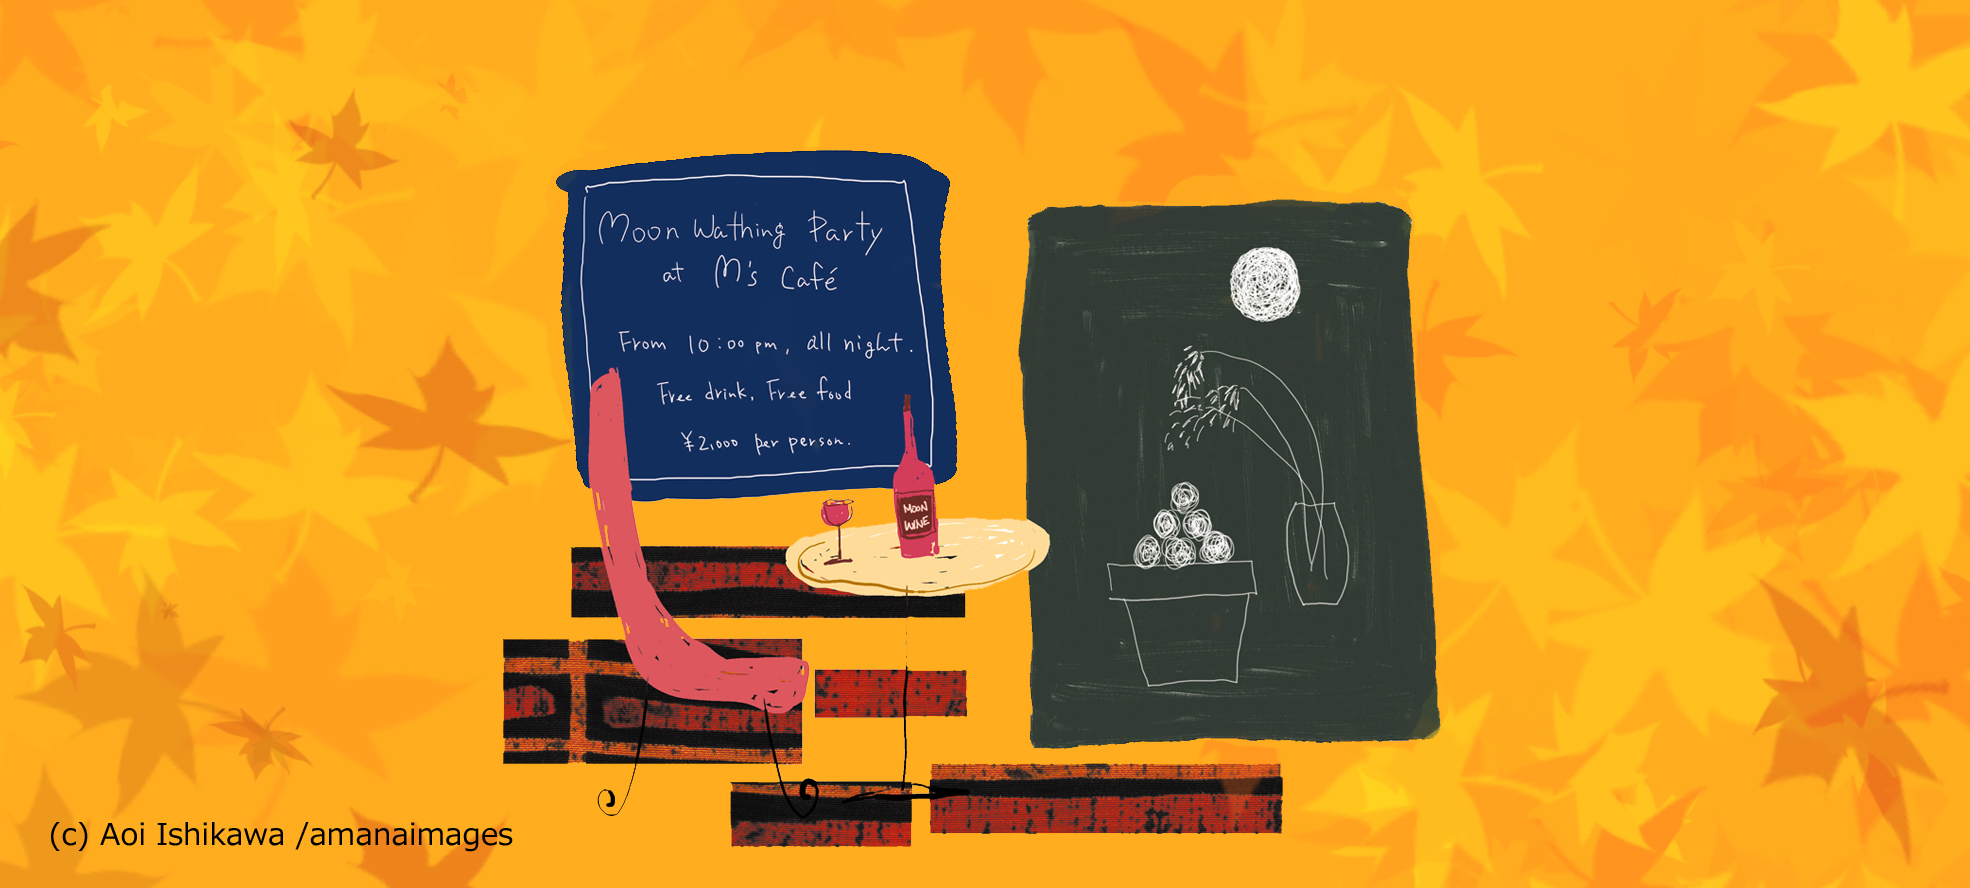 Moon Wathing Party
at M's Café
From 10:00 pm, all night.
Free drink, Free food
¥2,000 per person.
MOON
WINE
(c) Aoi Ishikawa /amanaimages